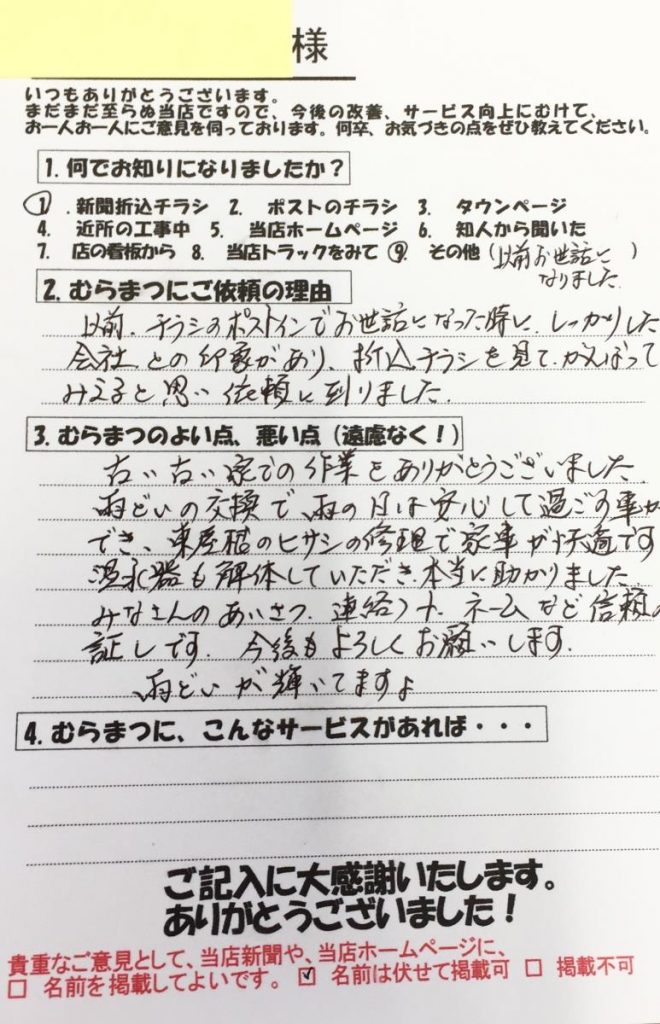 様
いつもありがとうございます。
まだまだ至らぬ当店ですので、今後の改善、サービス向上にむけて、
お一人お一人にご意見を伺っております。何卒、お気づきの点をぜひ教えてください。
1. 何でお知りになりましたか？
1 . 新聞折込チラシ 2. ポストのチラシ 3. タウンページ
4. 近所の工事中 5. 当店ホームページ 6. 知人から聞いた
7. 店の看板から 8. 当店トラックをみて 9. その他（以前お世話に
なりました。）
2. むらまつにご依頼の理由
以前、チラシのポストインでお世話になった時に、しっかりした
会社との印象があり、折込チラシを見て、がんばって
みえると思い依頼に到りました。
3. むらまつのよい点、悪い点（遠慮なく！）
古い古い家での作業をありがとうございました。
雨どいの交換で、雨の日は安心して過ごす事が
でき、東屋根のヒサシの修理で家事が快適です
温水器も解体していただき、本当に助かりました。
みなさんのあいさつ、連絡、ネームなど信頼の
証しです。今後もよろしくお願いします。
雨どいが輝いてますよ
4. むらまつに、こんなサービスがあれば・・・
ご記入に大感謝いたします。
ありがとうございました！
貴重なご意見として、当店新聞や、当店ホームページに、
□ 名前を掲載してよいです。 ☑ 名前は伏せて掲載可 □ 掲載不可